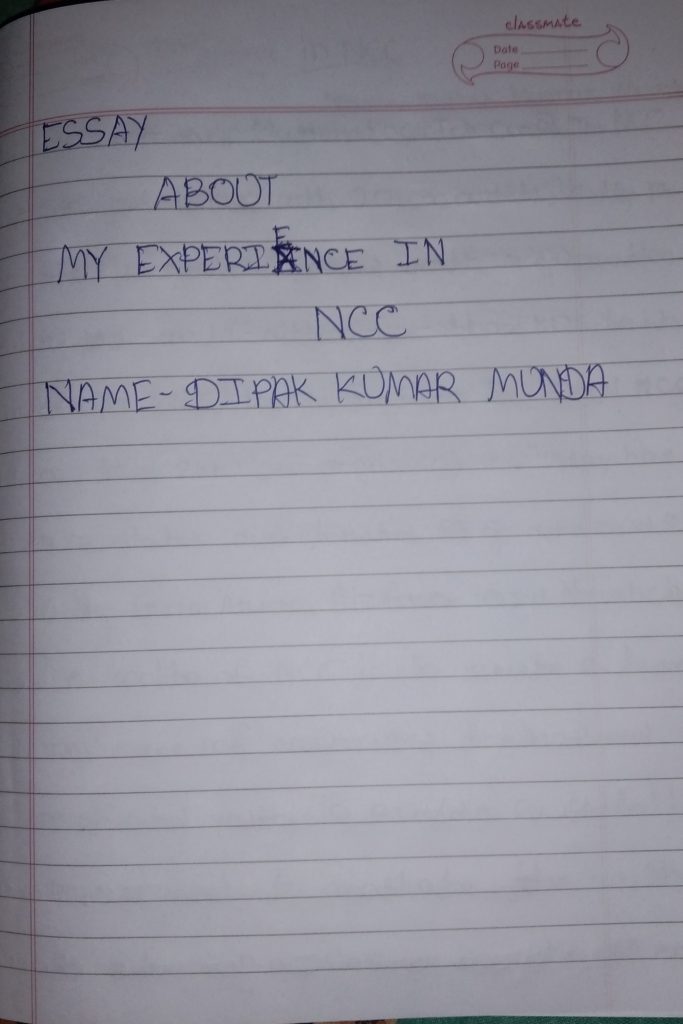 classmate
Date
Page
ESSAY
ABOUT
MY EXPERIENCE IN
NCC
NAME- DIPAK KUMAR MUNDA